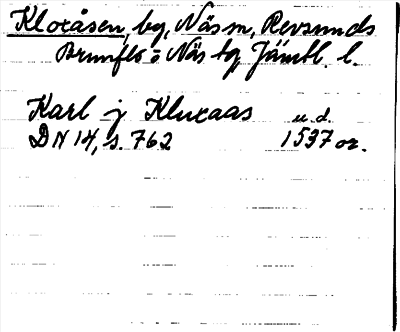 Kloxåsen, by, Näs sn, Revsunds
Brunflo o Näs tg Jämtl. l.
Karl j Kluxaas u.d.
DN 14, s. 762 1537 or.